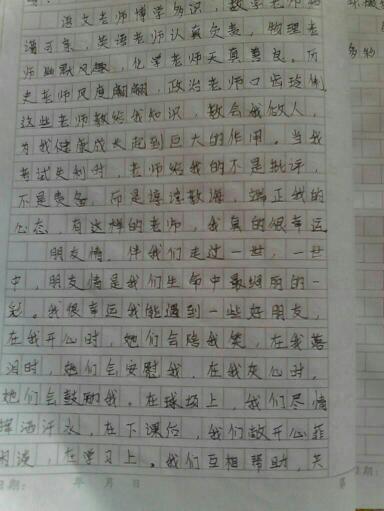 语文老师博学多识，数学老师和
蔼可亲，英语老师认真负责，物理老
师幽默风趣，化学老师天真善良，历
史老师风度翩翩，政治老师口齿伶俐
这些老师教给我知识，教会我做人，
为我健康成长起到巨大的作用。当我
考试失利时，老师给我的不是批评，
不是责备，而是谆谆教诲，端正我的
心态，有这样的老师，我真的很幸运
朋友情，伴我们走过一世，一世
中，朋友情是我们生命中最绚丽的一
笔。我很幸运我能遇到一些好朋友，
在我开心时，她们会陪我笑，在我落
泪时，她们会安慰我，在我灰心时，
她们会鼓励我。在球场上，我们尽情
挥洒汗水，在下课后，我们敞开心菲
在学习上。我们互相帮助，共
日期： 年 月 日 第